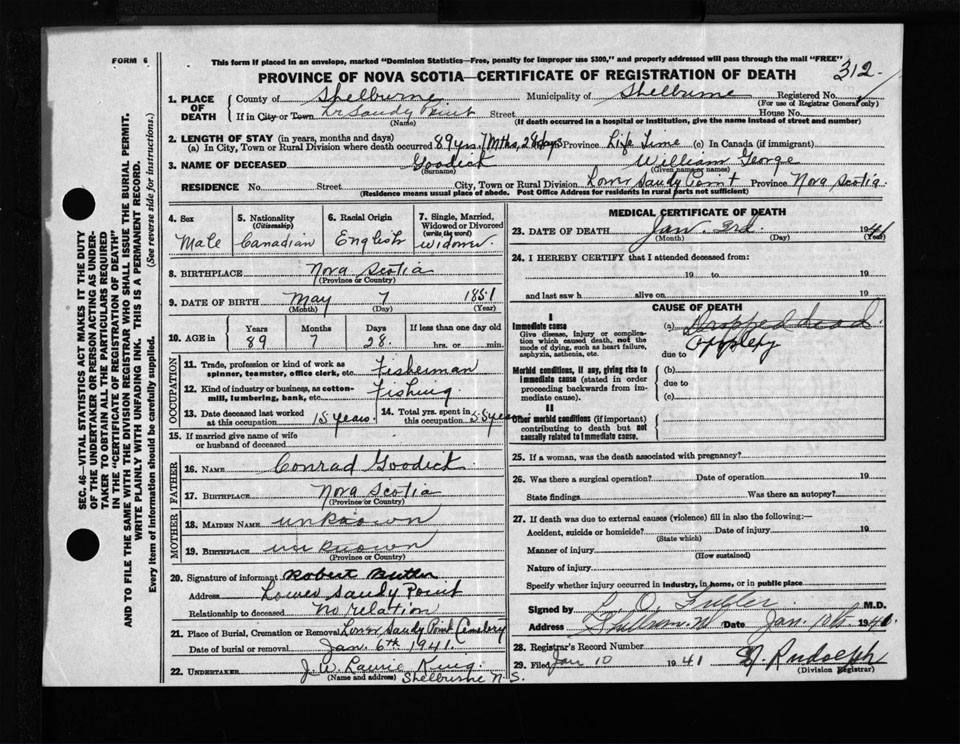 FORM 6
This form if placed in an envelope, marked "Dominion Statistics—Free, penalty for improper use $300," and properly addressed will pass through the mail "FREE"
PROVINCE OF NOVA SCOTIA—CERTIFICATE OF REGISTRATION OF DEATH
312
SEC. 46—VITAL STATISTICS ACT MAKES IT THE DUTY
OF THE UNDERTAKER OR PERSON ACTING AS UNDER-
TAKER TO OBTAIN ALL THE PARTICULARS REQUIRED
IN THE "CERTIFICATE OF REGISTRATION OF DEATH"
AND TO FILE THE SAME WITH THE DIVISION REGISTRAR WHO SHALL ISSUE THE BURIAL PERMIT.
WRITE PLAINLY WITH UNFADING INK. THIS IS A PERMANENT RECORD.
Every item of information should be carefully supplied. (See reverse side for instructions.)
1. PLACE OF DEATH County of Shelburne Municipality of Shelburne Registered No.
(For use of Registrar General only)
If in City or Town Lr Sandy Point Street House No.
(Name) (If death occurred in a hospital or institution, give the name instead of street and number)
2. LENGTH OF STAY (in years, months and days)
(a) In City, Town or Rural Division where death occurred 89 yrs. 7 Mths, 28 days Province Life Time (c) In Canada (if immigrant)
3. NAME OF DECEASED Goodick William George
(Surname) (Given name or names)
RESIDENCE No. Street City, Town or Rural Division Lower Sandy Point Province Nova Scotia
(Residence means usual place of abode. Post Office Address for residents in rural parts not sufficient)
4. Sex Male
5. Nationality (Citizenship) Canadian
6. Racial Origin English
7. Single, Married, Widowed or Divorced (write the word) Widower
8. BIRTHPLACE Nova Scotia
(Province or Country)
9. DATE OF BIRTH May 7 1851
(Month) (Day) (Year)
10. AGE in Years Months Days If less than one day old
89 7 28 hrs. or min.
OCCUPATION
11. Trade, profession or kind of work as spinner, teamster, office clerk, etc. Fisherman
12. Kind of industry or business, as cotton-mill, lumbering, bank, etc. Fishing
13. Date deceased last worked at this occupation 15 years 14. Total yrs. spent in this occupation 55 years
15. If married give name of wife or husband of deceased
FATHER
16. NAME Conrad Goodick
17. BIRTHPLACE Nova Scotia
(Province or Country)
MOTHER
18. MAIDEN NAME unknown
19. BIRTHPLACE unknown
(Province or Country)
20. Signature of informant Robert Butler
Address Lower Sandy Point
Relationship to deceased No relation
21. Place of Burial, Cremation or Removal Lower Sandy Point Cemetery
Date of burial or removal Jan. 6th 1941.
22. UNDERTAKER J. W. Laurie King.
(Name and address) Shelburne N.S.
MEDICAL CERTIFICATE OF DEATH
23. DATE OF DEATH Jan. 3rd. 1941
(Month) (Day) (Year)
24. I HEREBY CERTIFY that I attended deceased from:
19 to 19
and last saw h alive on 19
CAUSE OF DEATH
I
Immediate cause
Give disease, injury or complication which caused death, not the mode of dying, such as heart failure, asphyxia, asthenia, etc.
(a) Dropped dead
due to
Morbid conditions, if any, giving rise to immediate cause (stated in order proceeding backwards from immediate cause).
(b)
due to
(c)
II
Other morbid conditions (if important) contributing to death but not causally related to immediate cause.
25. If a woman, was the death associated with pregnancy?
26. Was there a surgical operation? Date of operation 19
State findings Was there an autopsy?
27. If death was due to external causes (violence) fill in also the following:—
Accident, suicide or homicide? Date of injury 19
(State which)
Manner of injury
(How sustained)
Nature of injury
Specify whether injury occurred in industry, in home, or in public place
Signed by L. O. Fuller M.D.
Address Date Jan. 10th. 1941
28. Registrar's Record Number
29. Filed Jan 10 1941 Rudolph
(Division Registrar)